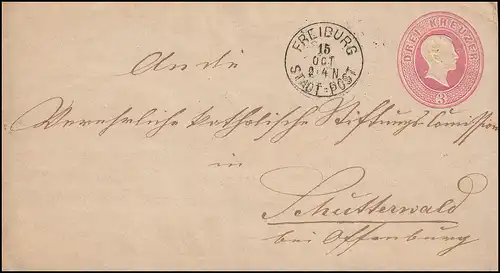 DREI KREUZER
3
FREIBURG
15
OCT
2-4 N
STADT-POST
An die
Verehrliche katholische Stiftungs Comission
in
Schutterwald
bei Offenburg